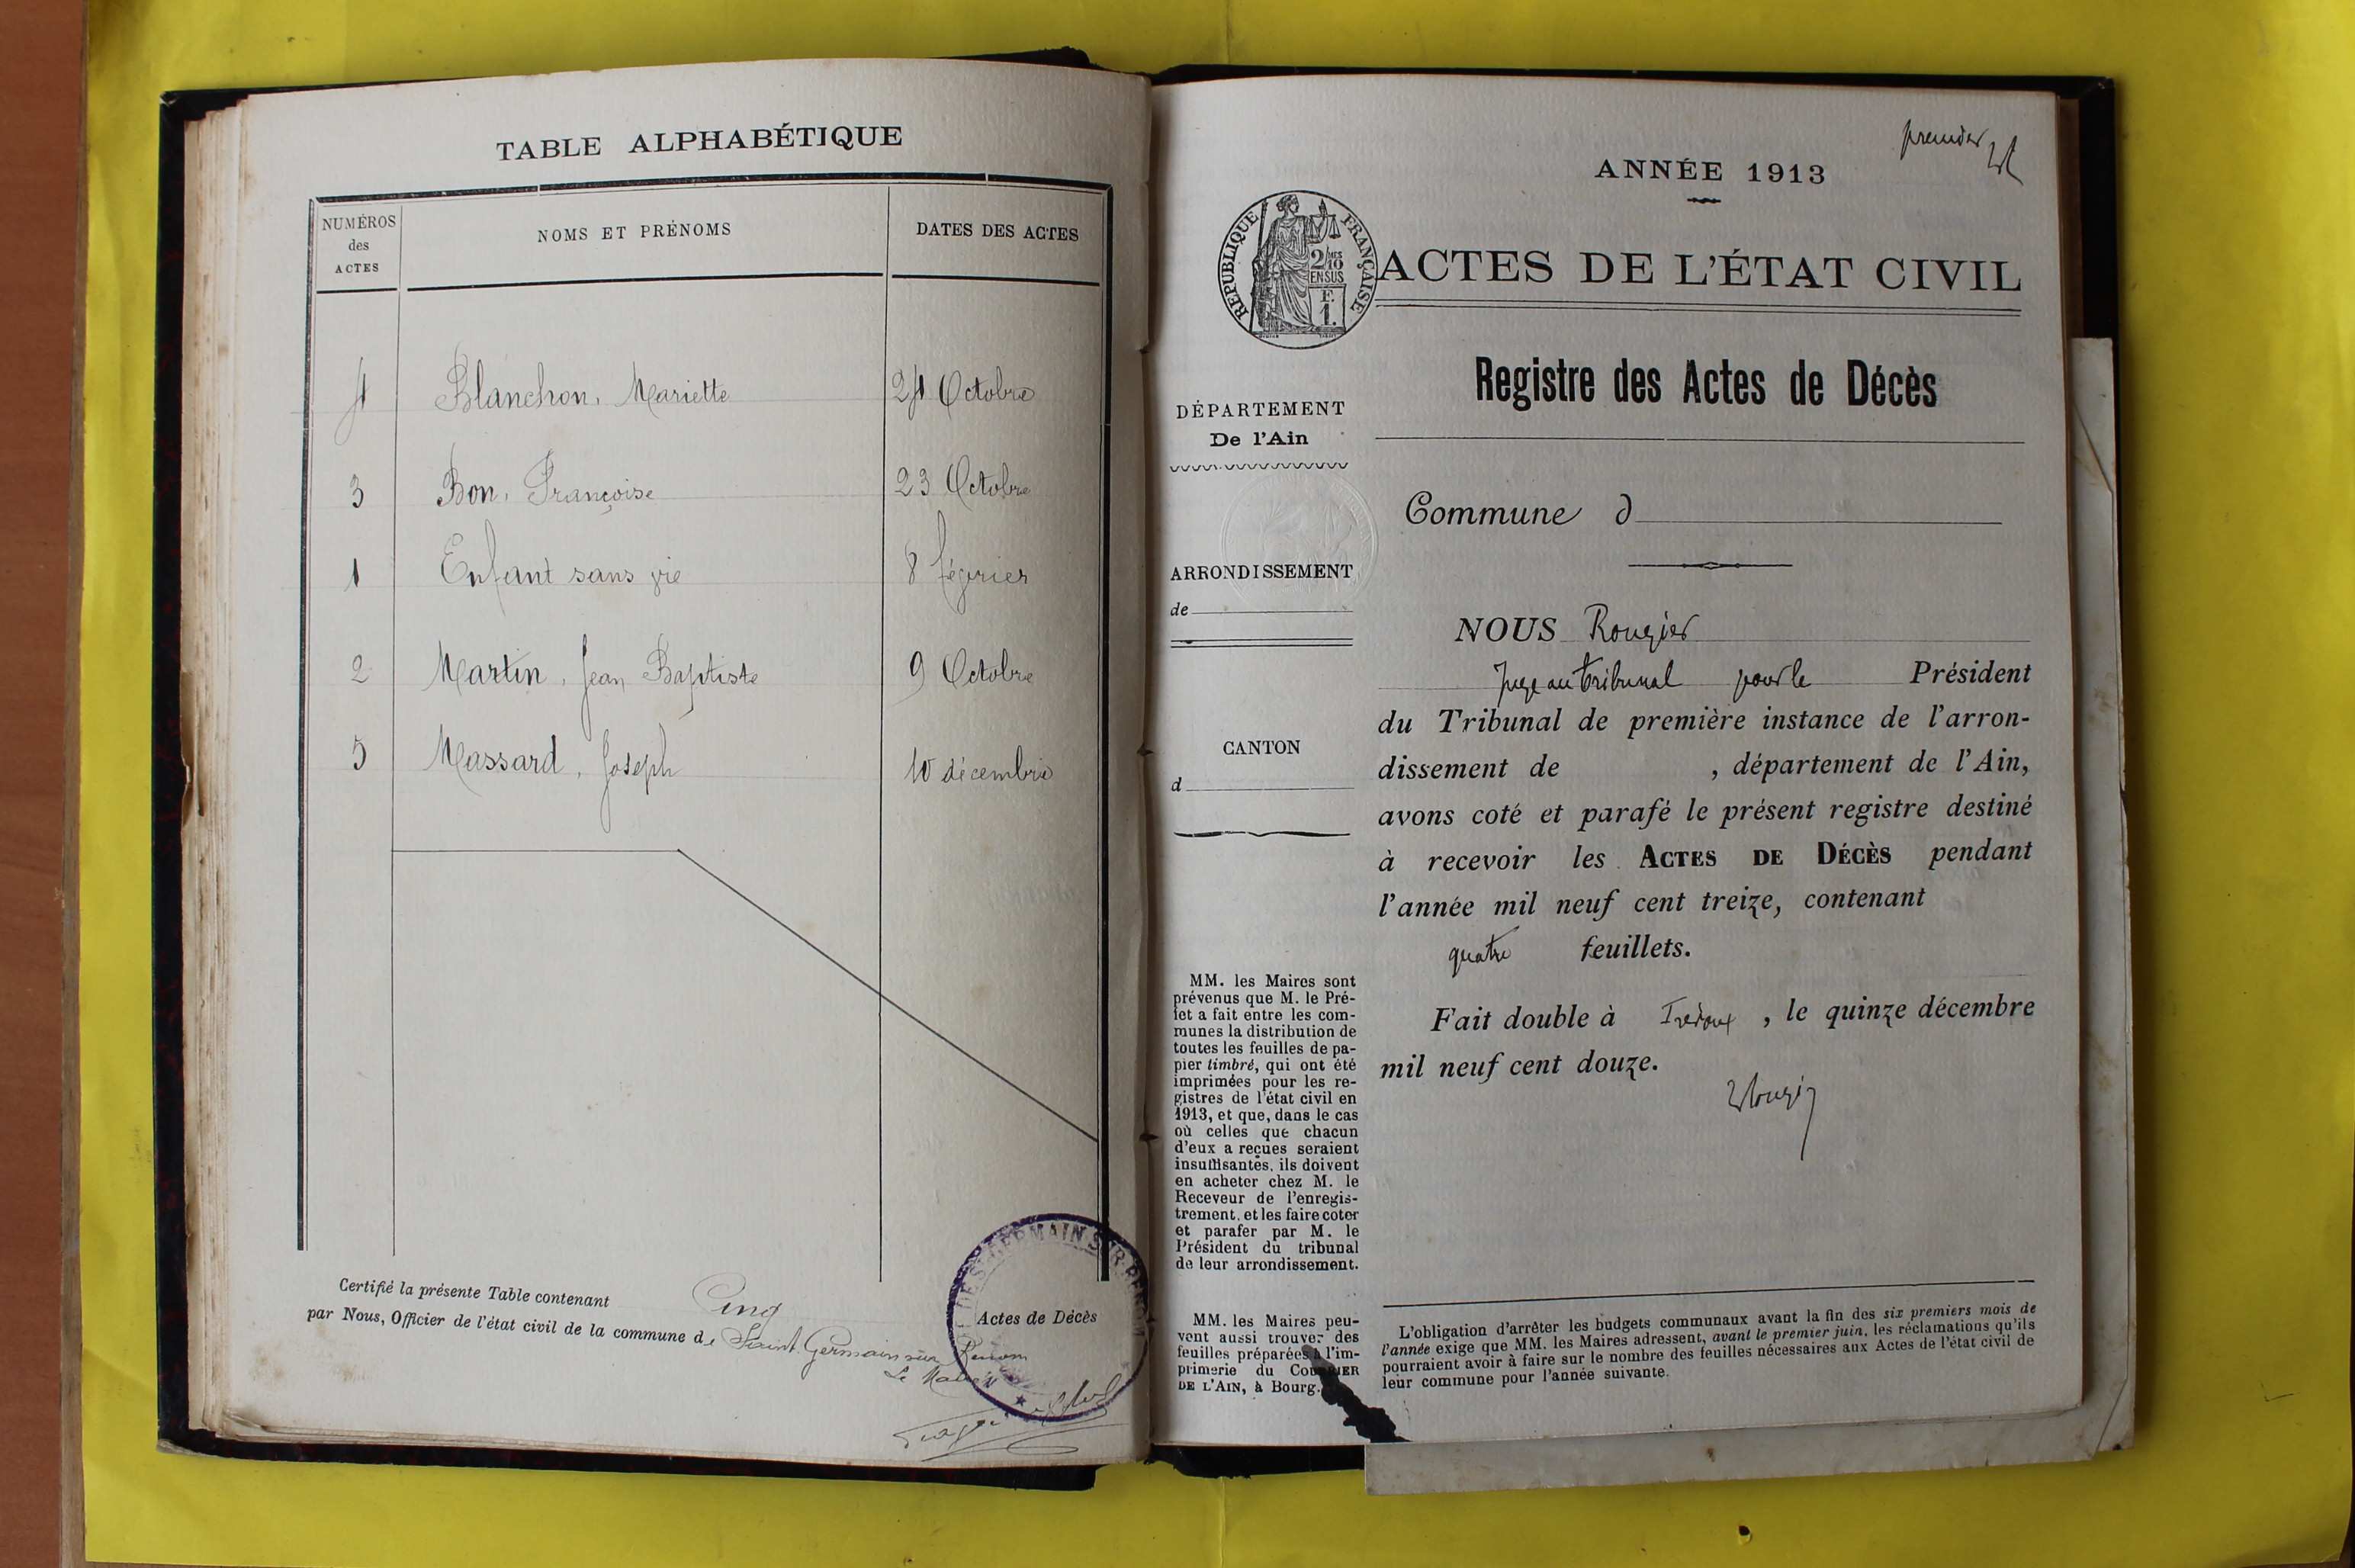 TABLE ALPHABÉTIQUE
NUMÉROS des ACTES
NOMS ET PRÉNOMS
DATES DES ACTES
4 Blanchon, Mariette 24 Octobre
3 Bon, Françoise 23 Octobre
1 Enfant sans vie 8 février
2 Martin, Jean Baptiste 9 Octobre
5 Massard, Joseph 10 décembre
Certifié la présente Table contenant Cinq Actes de Décès
par Nous, Officier de l'état civil de la commune de Saint Germain sur Renom
Le Maire
premier
ANNÉE 1913
RÉPUBLIQUE FRANÇAISE
2/10 EN SUS
F. 1.
ACTES DE L'ÉTAT CIVIL
Registre des Actes de Décès
DÉPARTEMENT
De l'Ain
Commune d
ARRONDISSEMENT
de
CANTON
d
NOUS Rougier
Juge au tribunal pour le Président
du Tribunal de première instance de l'arron-
dissement de , département de l'Ain,
avons coté et parafé le présent registre destiné
à recevoir les ACTES DE DÉCÈS pendant
l'année mil neuf cent treize, contenant
quatre feuillets.
Fait double à Trévoux, le quinze décembre
mil neuf cent douze.
Rougier
MM. les Maires sont
prévenus que M. le Pré-
fet a fait entre les com-
munes la distribution de
toutes les feuilles de pa-
pier timbré, qui ont été
imprimées pour les re-
gistres de l'état civil en
1913, et que, dans le cas
où celles que chacun
d'eux a reçues seraient
insuffisantes, ils doivent
en acheter chez M. le
Receveur de l'enregis-
trement, et les faire coter
et parafer par M. le
Président du tribunal
de leur arrondissement.
MM. les Maires peu-
vent aussi trouver des
feuilles préparées à l'im-
primerie du COURRIER
DE L'AIN, à Bourg.
L'obligation d'arrêter les budgets communaux avant la fin des six premiers mois de
l'année exige que MM. les Maires adressent, avant le premier juin, les réclamations qu'ils
pourraient avoir à faire sur le nombre des feuilles nécessaires aux Actes de l'état civil de
leur commune pour l'année suivante.